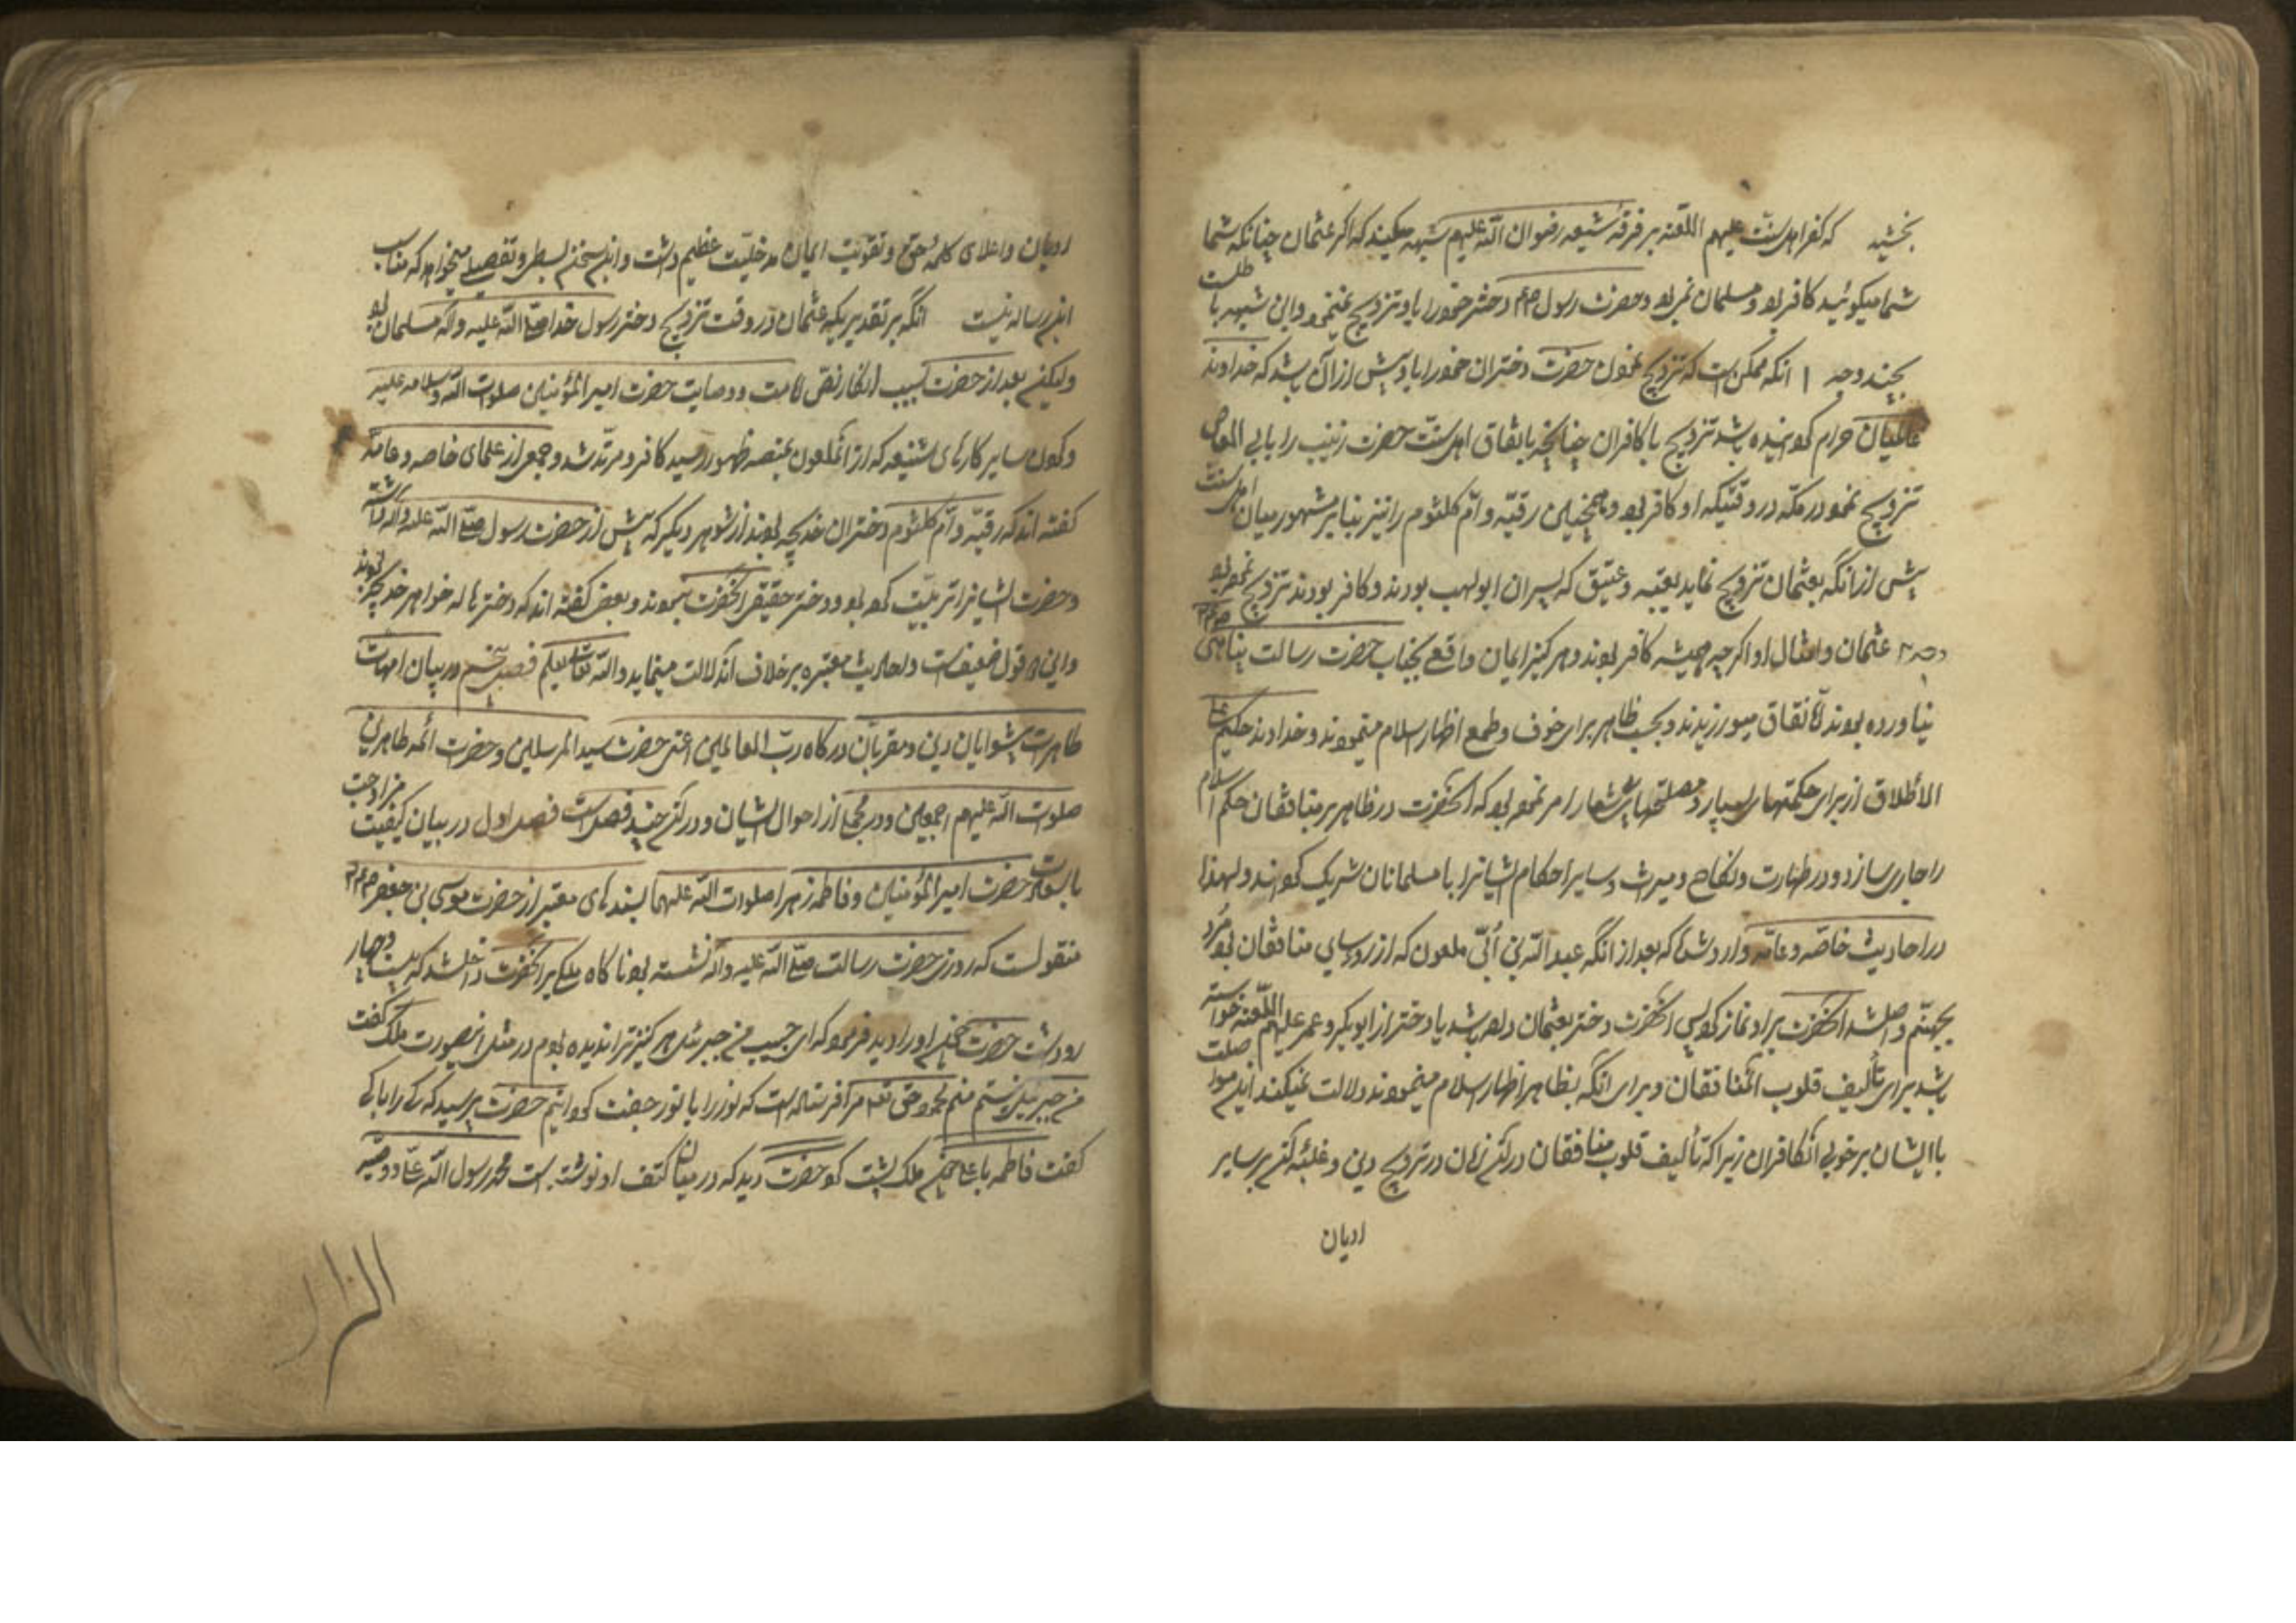 بخشید که کفر اهل سنت علیهم اللعنه بر فرقه شیعه رضوان الله علیهم شبهه میکنند که اگر عثمان چنانکه شما
شما میگوئید کافر بود و مسلمان نمیبود حضرت رسول صلعم دختر خود را باو تزویج نمینمود و این شبهه باطلست
بچند وجه ۱ انکه ممکن است که تزویج نمودن حضرت دختران خود را باو پیش از آن باشد که خداوند
عالمیان حرام کردانیده باشد تزویج با کافران چنانچه باتفاق اهل سنت حضرت زینب را بابی العاص
تزویج نمود در مکه در وقتیکه او کافر بود و همچنین رقیه و ام کلثوم را نیز بنابر مشهور میان اهل سنت
پیش از انکه بعثمان تزویج نماید بعتبه و عتیق که پسران ابولهب بودند و کافر بودند تزویج نموده بود
وجه ۲ عثمان و امثال او اگرچه همیشه کافر بودند و هرکز ایمان واقعی بجناب حضرت رسالت پناهی صلعم
نیاورده بودند لکن نفاق میورزیدند و بحسب ظاهر برای خوف و طمع اظهار اسلام مینمودند و خداوند حکیم علی
الاطلاق از برای حکمتهای بسیار و مصلحتهای بیشمار امر نموده بود که آنحضرت در ظاهر بر منافقان حکم اسلام
را جاری سازد و در طهارت و نکاح و میراث و سایر احکام ایشانرا با مسلمانان شریک کرداند و لهذا
در احادیث خاصه و عامه وارد شده که بعد از انکه عبد الله بن أبی ملعون که از رؤسای منافقان بود مرد
بجهنم واصل شد آنحضرت بر او نماز کرد پس آنحضرت دختر بعثمان داده باشد یا دختر از ابوبکر و عمر علیهم اللعنه خواسته
باشد برای تألیف قلوب المنافقان و برای انکه بظاهر اظهار اسلام مینمودند دلالت نمیکند این مواصلت
با ایشان بر خوبی آن کافران زیرا که تألیف قلوب منافقان در آن زمان در ترویج دین و غلبه آن بر سایر
ادیان
ادیان و اعلای کلمه حق و تقویت ایمان مدخلیت عظیم داشت و این سخن بسط و تفصیلی میخواهد که مناسب
این رساله نیست انکه بر تقدیریکه عثمان در وقت تزویج دختر رسول خدا صلی الله علیه و آله مسلمان بود
ولیکن بعد از حضرت بسبب انکار نص امامت و وصایت حضرت امیر المؤمنین صلوات الله و سلامه علیه
و کردن سایر کارهای شنیعه که از آن ملعون بمنصه ظهور رسید کافر و مرتد شد و جمعی از علمای خاصه و عامه
گفته اند که رقیه و ام کلثوم دختران خدیجه بودند از شوهر دیگر که پیش از حضرت رسول صلی الله علیه و آله داشته
و حضرت ایشانرا تربیت کرده بود و دختر حقیقی آنحضرت نبودند و بعضی گفته اند که دختر هاله خواهر خدیجه بودند
و این هر دو قول ضعیفست و احادیث معتبره بر خلاف آن دلالت مینماید والله تعالی یعلم فصل پنجم در بیان امهات
طاهرات پیشوایان دین و مقربان درگاه رب العالمین اعنی حضرت سید المرسلین و حضرت ائمه طاهرین
صلوات الله علیهم اجمعین و در مجملی از احوال ایشان و در آن چند فصل است فصل اول در بیان کیفیت مزاوجت
با سعادت حضرت امیر المؤمنین و فاطمه زهرا صلوات الله علیهما بسندهای معتبر از حضرت موسی بن جعفر
منقولست که روزی حضرت رسالت صلی الله علیه و آله نشسته بود ناگاه ملکی بر آنحضرت داخل شد که بیست و چهار
رو داشت حضرت چون او را دید فرمود که ای حبیب من جبرئیل هرگز ترا ندیده بودم در مثل این صورت ملک گفت
من جبرئیل نیستم منم محمود حق تعالی مرا فرستاده است که نور را با نور جفت کردانم حضرت پرسید که کی را با کی
گفت فاطمه با علی چون ملک پشت کرد حضرت دید که در میان کتف او نوشته است محمد رسول الله علی وصیه